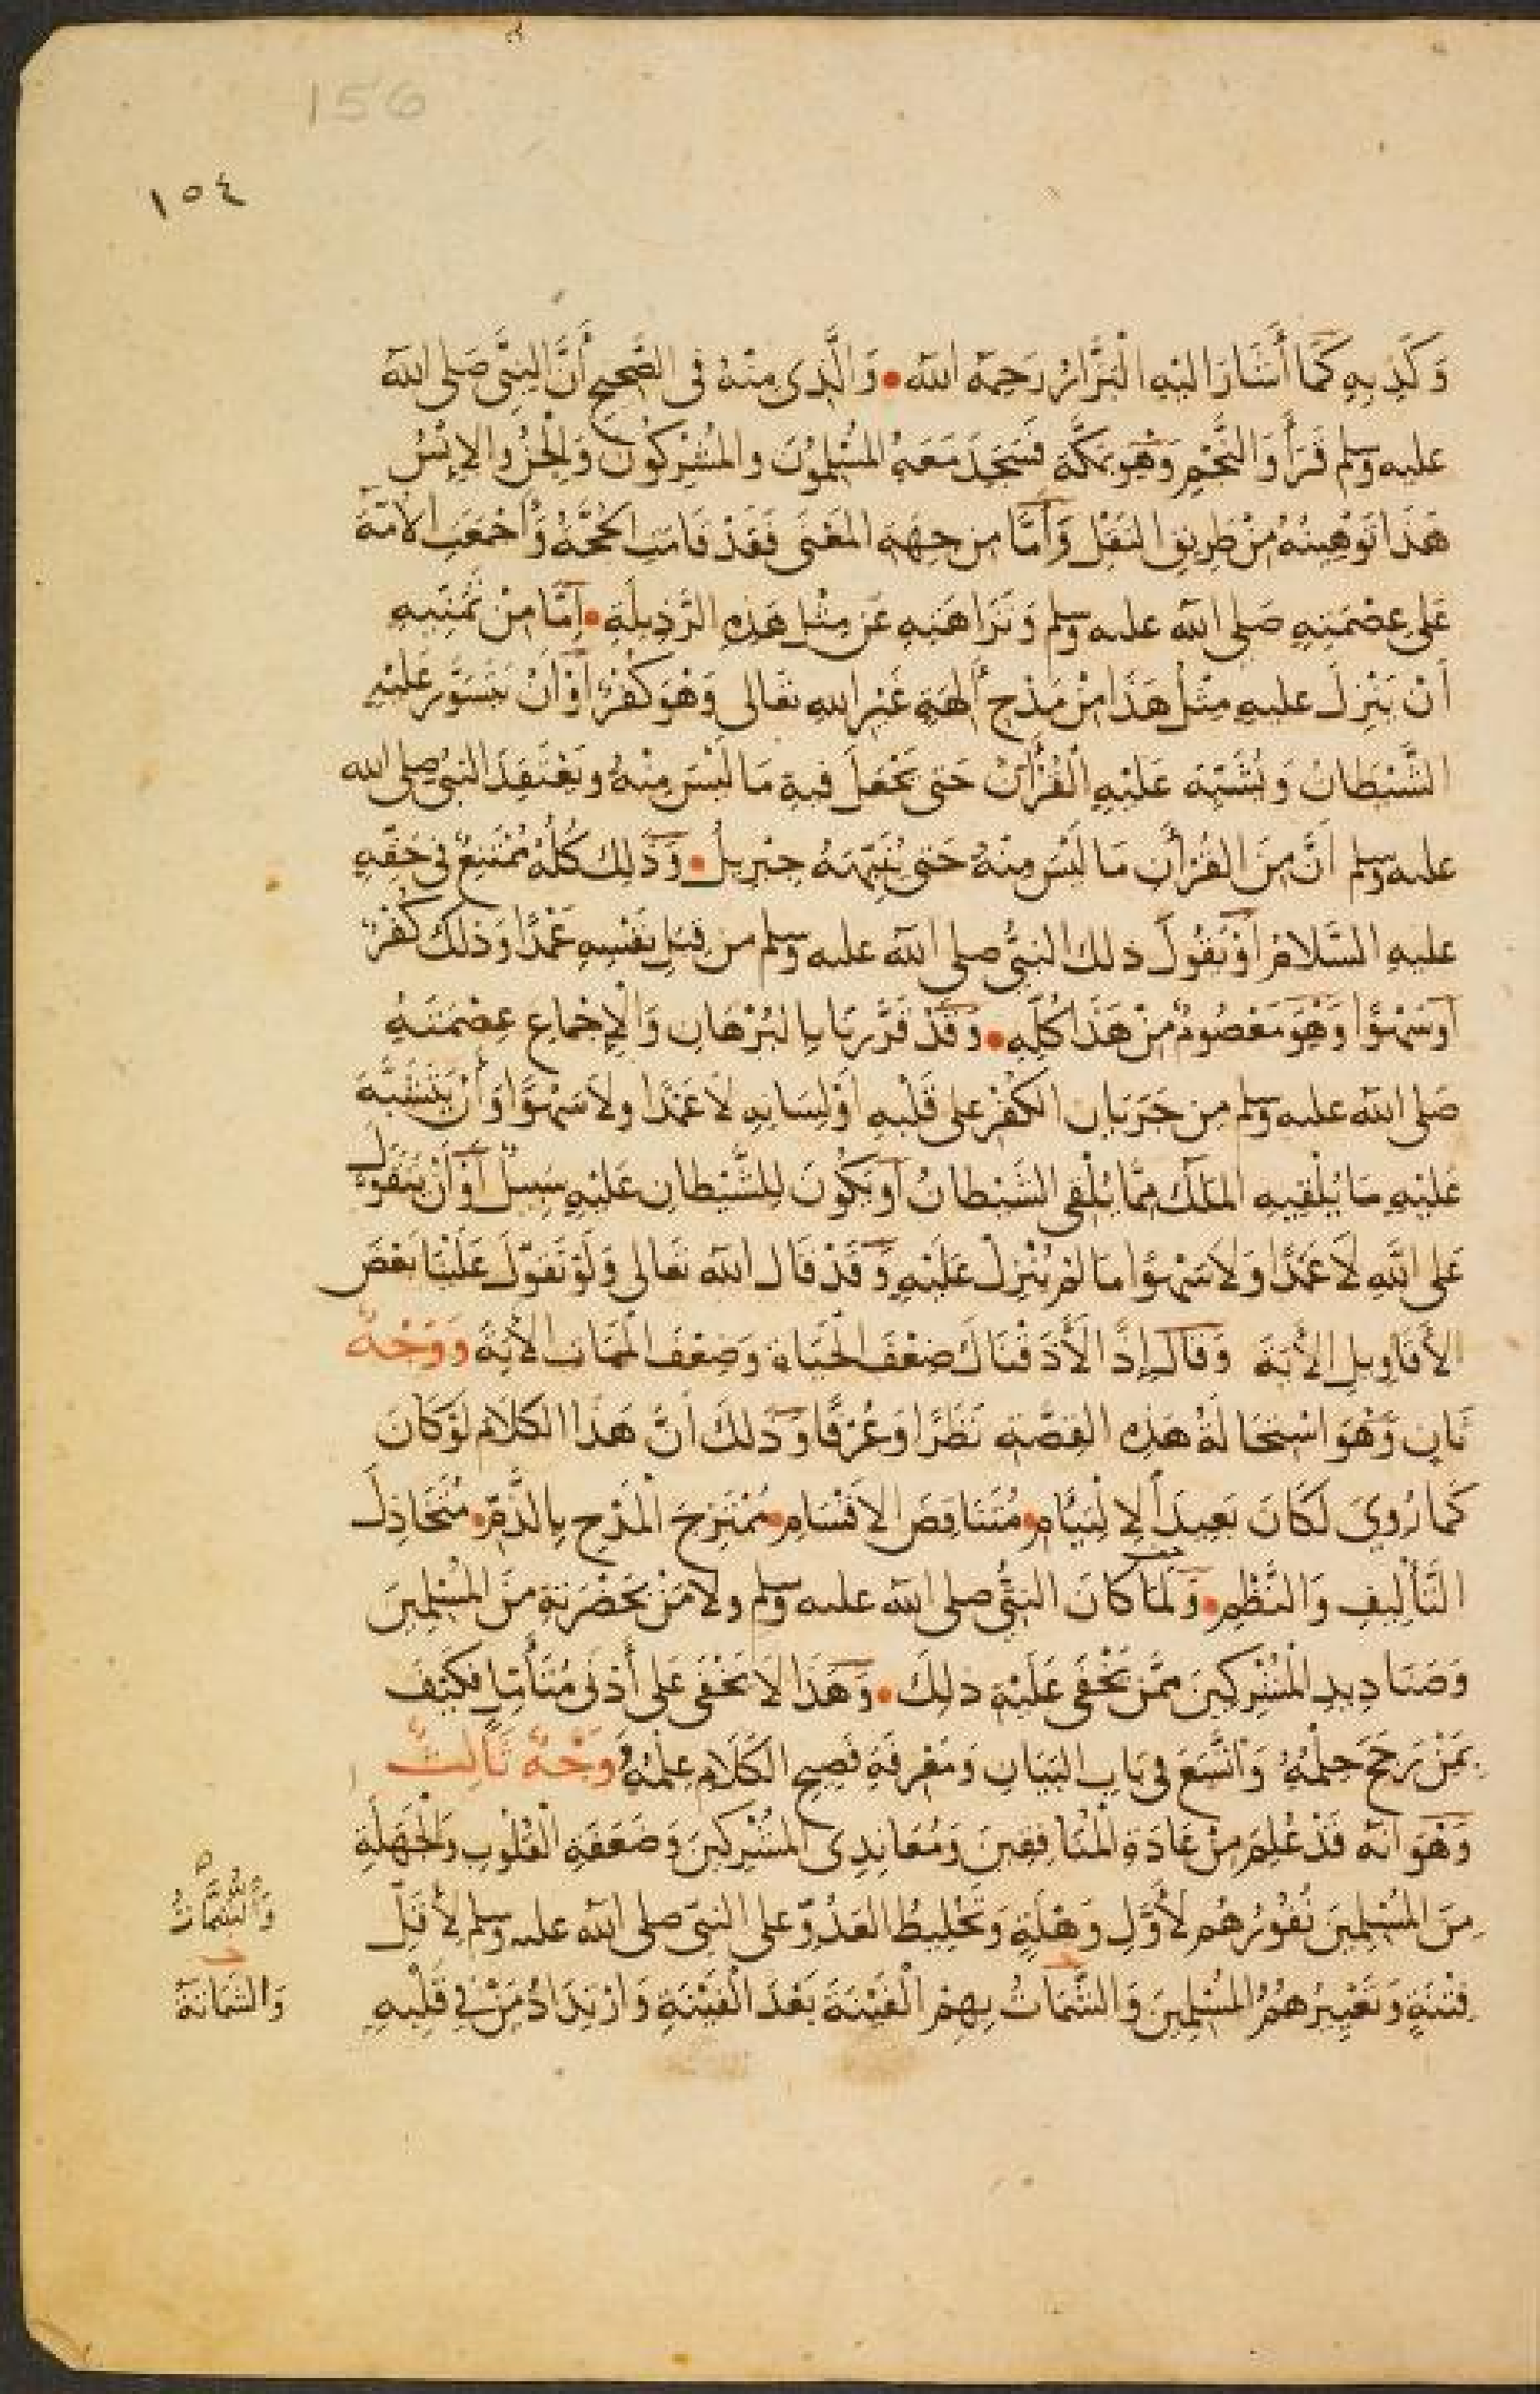 156
١٥٤
وَكَذِبِهِ كَمَا أَشَارَ اليْهِ الْبَزَّارُ رَحِمَهُ اللّه • وَالَّذِى مِنْهُ فِى الصَّحِيحِ أَنَّ النَّبِىَّ صَلى اللّه
عليه وسلم قَرَأَ وَالنَّجْمِ وَهْوَ بمَكَّةَ فَسَجَدَ مَعَهُ المُسْلِمُوْنَ والمُشْرِكُونَ وَالْجِنُّ والاِنْسُ
هَذَا تَوْهِينُهُ مِنْ طَرِيقِ النَقْلِ وَأمَّا مِن جِهَةِ المَعْنَى فَقَدْ قَامَتِ الحُجَّةُ وَأَجْمَعَتِ الأمّة
عَلى عِصْمَتِهِ صَلى اللّه عليه وسلم وَنَزَاهَتِهِ عَن مِثْلِ هَذِهِ الرَّذِيلَةِ • اِمَّا مِنْ تَمَنِّيهِ
اَنْ يَنْزِلَ عليهِ مِثْلُ هَذَا مِنْ مَدْحِ أَلِهَةٍ غَيْرِ اللهِ تعَالى وَهْوَ كُفْرٌ اَوْ اَنْ يَتَسَوَّرَ عَليْهِ
الشَّيْطَانُ وَيُشَبِّهَ عَلَيْهِ الْقُرْآنَ حَتى يَجْعَلَ فيهِ مَا لَيْسَ مِنْهُ ويَعْتَقِدَ النبىُّ صلى الله
عليه وسلم اَنَّ مِنَ القُرْأَنِ مَا لَيْسَ مِنْهُ حَتى يُنَبِّهَهُ جِبْرِيلُ • وَذَلِكَ كُلُّهُ مُمْتَنِعٌ فى حَقِّهِ
عليهِ السَّلامُ اَوْ يَقُولَ ذلك النبىُّ صلى اللّه عليه وسلم من قِبَلِ نَفْسِهِ عَمْدًا وَذلكَ كُفْرٌ
اَوْ سَهْوًا وَهْوَ مَعْصُومٌ مِنْ هَذَا كُلِّهِ • وَقَدْ قَرَّرْنَا بِالبُرْهَانِ وَالْاِجْمَاعِ عِصْمَتَهُ
صَلى اللّه عليه وسلم مِن جَرَيَانِ الكُفْرِ على قَلْبِهِ اَوْ لِسَانِهِ لاَ عَمْدًا ولاَ سَهْوًا وَأَنْ يَتَشَبَّهَ
عَلَيْهِ مَا يُلْقِيهِ المَلَكُ مِمَّا يُلْقِى الشَيْطانُ اَوْ يَكُونَ لِلشَّيْطانِ عَلَيْهِ سَبِيلٌ اَوْ أَنْ يَتَقَوَّلَ
عَلى اللّهِ لاَ عَمْدًا وَلاَ سَهْوًا مَا لمْ يُنْزِلْ عَلَيْهِ وَقَدْ قَال اللّه تعَالى وَلَوْ تَقَوَّلَ عَلَيْنَا بَعْضَ
الأَقَاوِيلِ الأيَةَ وَقَالَ إِذًا لَأَذَقْنَاكَ ضِعْفَ الْحَيَاةِ وَضِعْفَ المَمَاتِ الأيَةَ وَوَجْهٌ
ثَانٍ وَهْوَ اسْتِحَالَةُ هَذِهِ القِصَّةِ نَظَرًا وَعُرْفًا وَذلكَ اَنَّ هَذَا الكَلاَم لَوْ كَانَ
كَمَا رُوِيَ لَكَانَ بَعِيدَ الاِلْتِيَامِ • مُتَنَاقِضَ الاَقْسَامِ • مُمْتَزِجَ الْمَدْحِ بِالذَّمِّ • مُتَخَاذِلَ
التَّأْلِيفِ وَالنَّظْمِ • وَلَمَا كَانَ النبىُّ صلى اللّه عليه وسلم ولاَ مَنْ بحَضْرَتِهِ مِنَ المُسْلِمِينَ
وَصَنَادِيدِ الْمُشْرِكِينَ مِمَّن يَخْفَى عَلَيْهِ ذلِكَ • وَهَذَا لاَ يَخْفَى عَلى أَدْنَى مُتَأَمِّلٍ فكَيْفَ
بِمَنْ رَجَحَ حِلْمُهُ وَاتَّسَعَ فى بَابِ البَيَانِ وَمَعْرِفَةِ فَصِيحِ الكَلَامِ عِلْمُهُ وَوَجْهٌ ثَالِثٌ
وَهْوَ انّه قَدْ عُلِمَ مِنْ عَادَةِ الْمُنَافِقِينَ وَمُعَانِدِى المُشْرِكِينَ وَضَعَفَةِ القُلُوبِ وَالْجَهَلَةِ
مِنَ المُسْلِمِينَ نُفُورُهُمْ لأَوَّلِ وَهْلَةٍ وَتَخْلِيطُ العَدُوِّ على النبىّ صلى اللّه عليه وسلم لأَقَلِّ
فِتْنَةٍ وَتَعْيِيرُهُمُ المُسْلِمِينَ وَالشَّمَاتُ بِهِمُ الْفَيْنَةَ بَعْدَ الْفَيْنَةِ وَارْتِدَادُ مَنْ فِى قَلْبِهِ
وَالشُّمَّاتُ
وَالشَمَاتَةُ